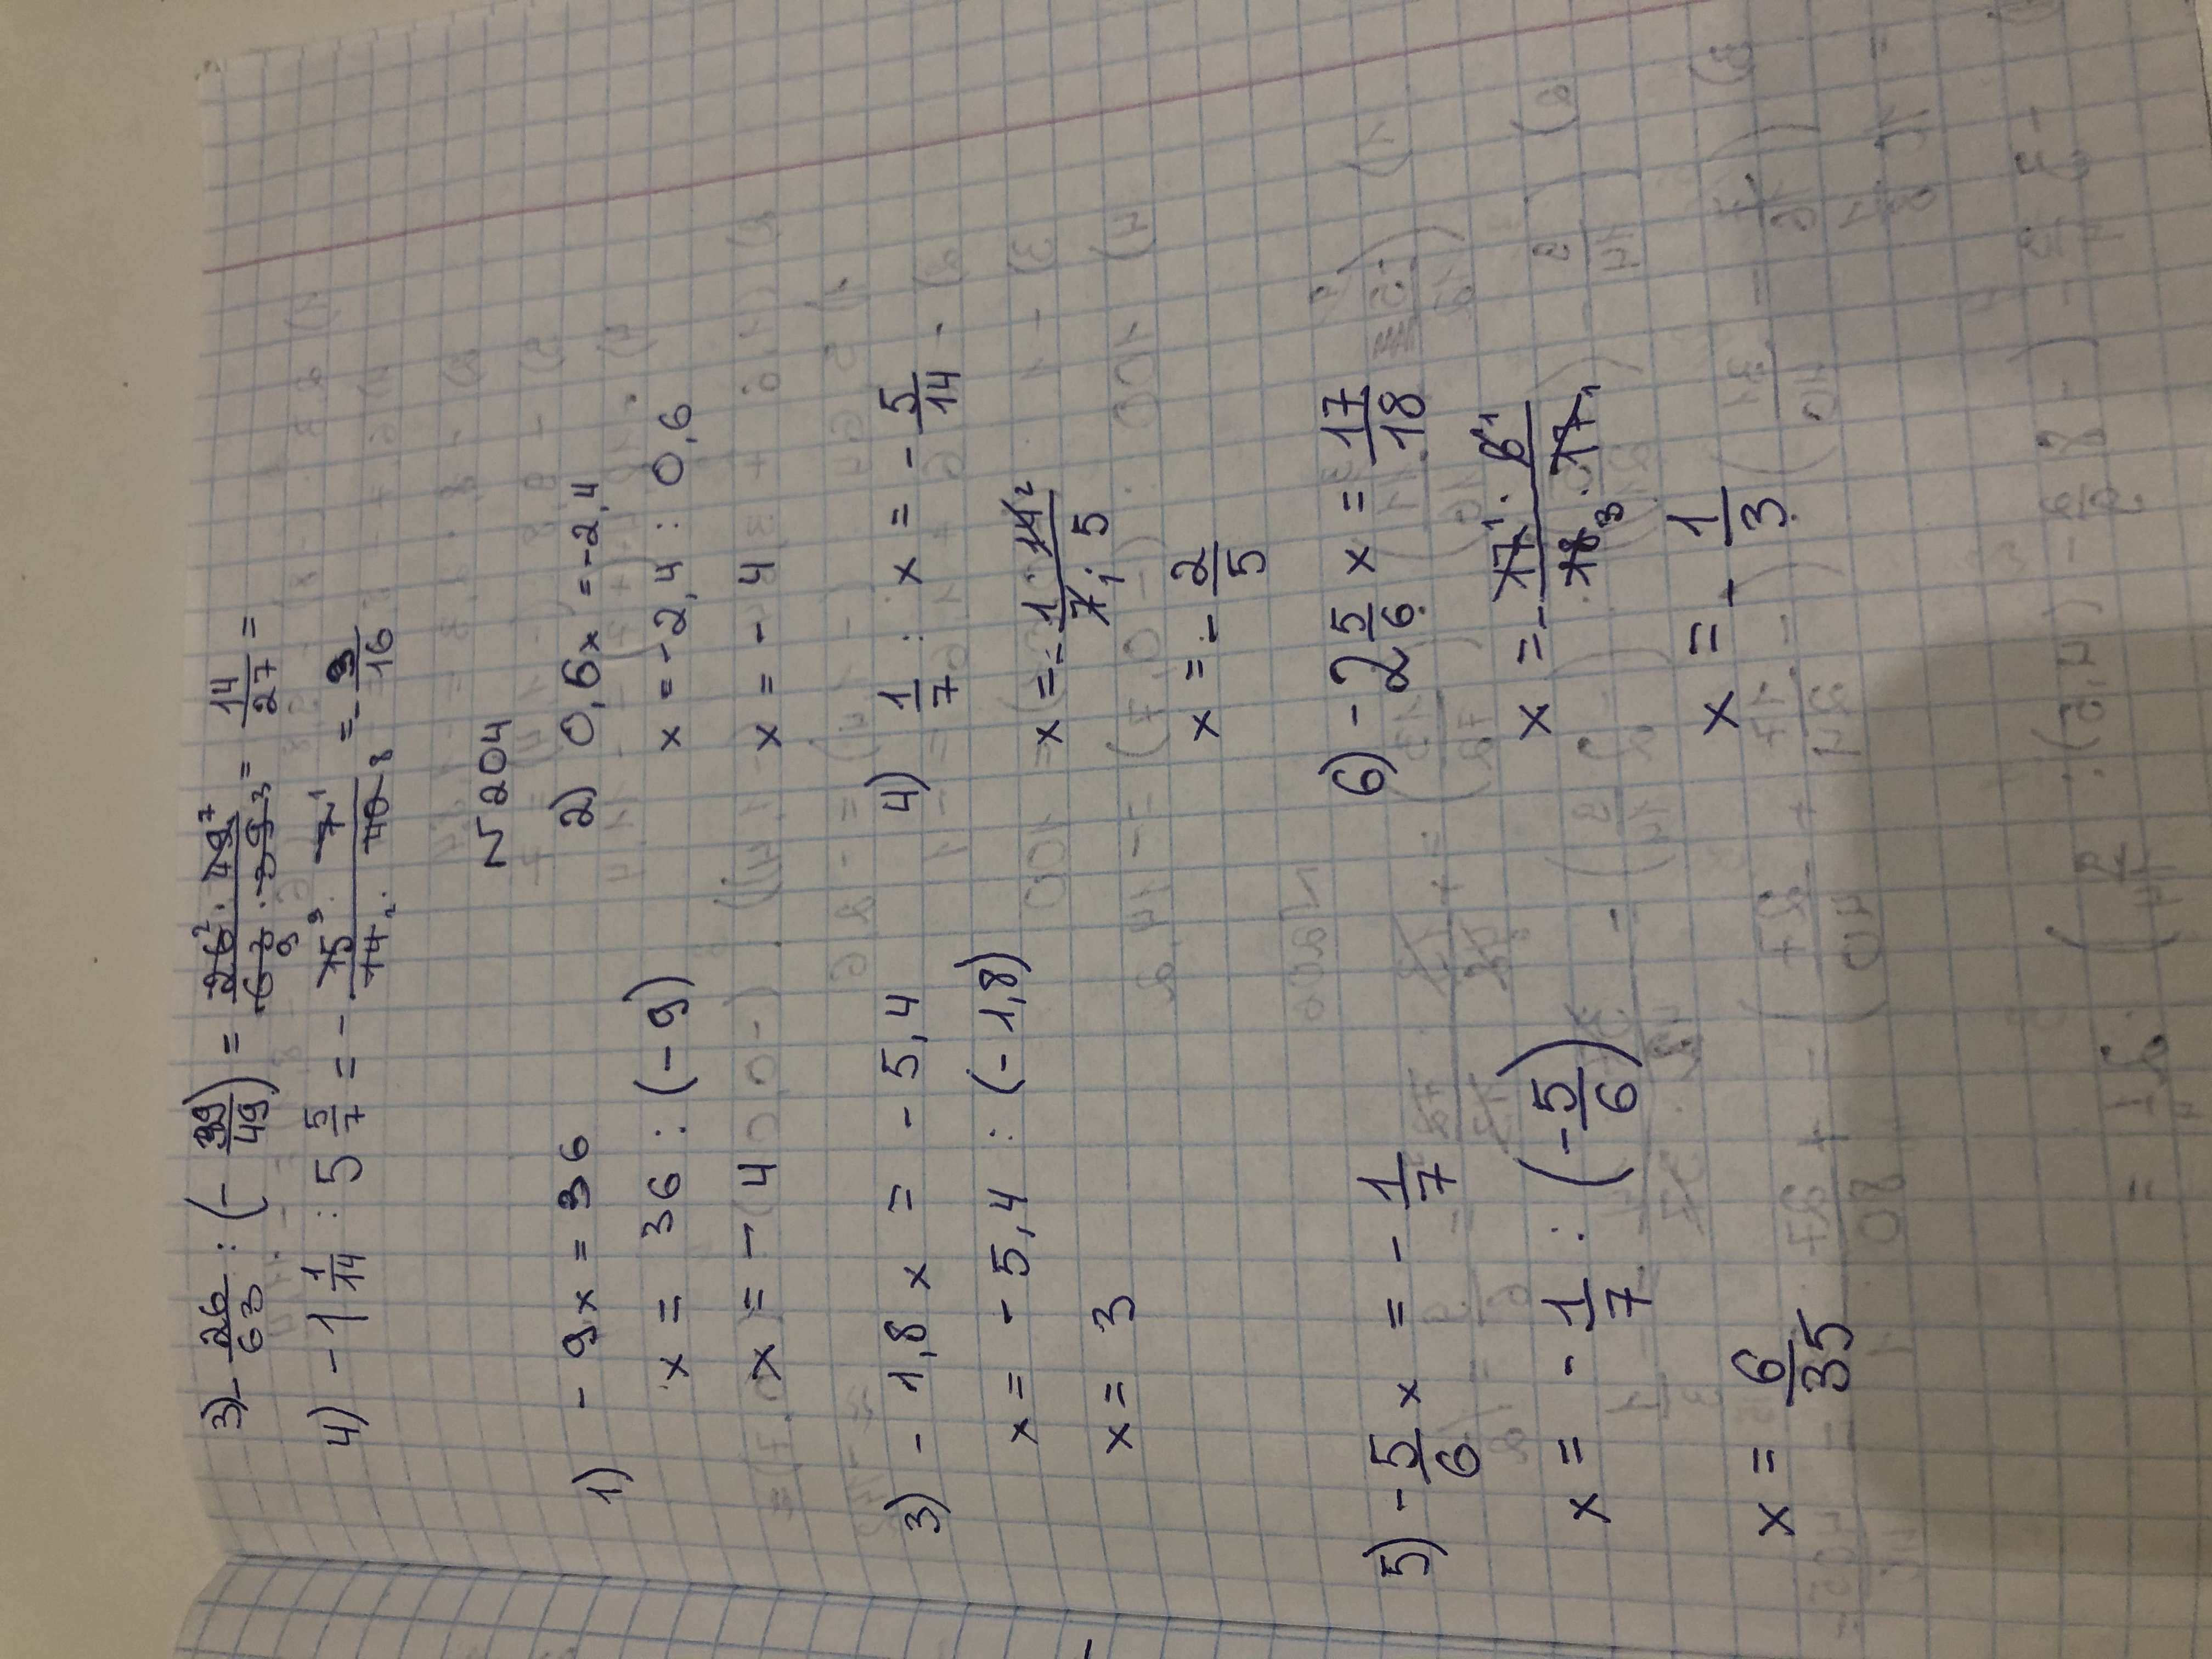 3) - 26/63 : (- 39/49) = 26² · 49⁷ / 63₉ · 39₃ = 14/27 =
4) - 1 1/14 : 5 5/7 = - 15³ · 7¹ / 14₂ · 40₈ = - 3/16
N 204
1) - 9x = 36
x = 36 : (-9)
x = - 4
2) 0,6x = -2,4
x = -2,4 : 0,6
x = - 4
3) - 1,8x = - 5,4
x = - 5,4 : (-1,8)
x = 3
4) 1/7 : x = - 5/14
x = - 1 · 14² / 7₁ · 5
x = - 2/5
5) - 5/6 x = - 1/7
x = - 1/7 : (- 5/6)
x = 6/35
6) - 2 5/6 x = 17/18
x = - 17¹ · 6¹ / 18₃ · 17₁
x = - 1/3